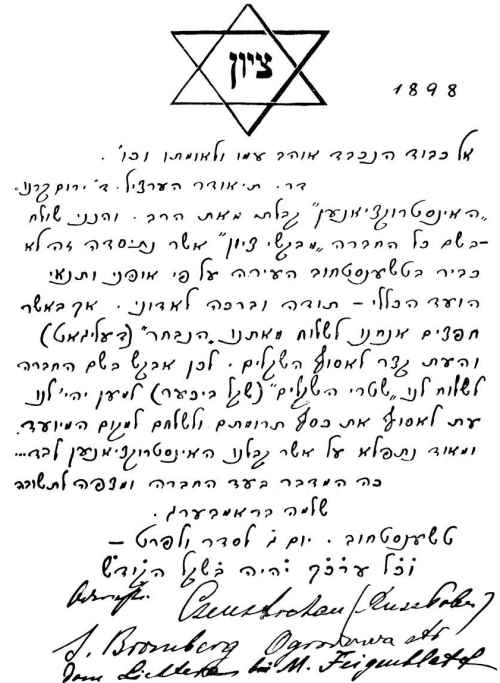 ציון
1898
אל כבוד הנכבד אוהב עמו ולאומתו וכו'.
דר. תיאודר הערציל. ד' ירום קרנו.
„האינסטרוגציאנען" קבלתי מאת הרב. והנני שולח
בשם כל החברה „מבקשי ציון" אשר נתיסדה זה לא־
כביר בטשענסטחוב העירה על פי אופני ותנאי
הועד הכללי – תודה וברכה לאדוני. אך באשר
חפצים אנחנו לשלוח מאתנו „הנבחר" (דעליגאט)
והעת קצר לאסוף השקלים. לכן אבקש בשם החברה
לשלוח לנו „שטרי השקלים" (שקל ביכער) למען יהי' לנו
עת לאסוף את כסף תרומתם ולשלחם למקום המיועד.
ומאוד נתפלא על אשר קבלנו האינסטרוקציאנען לבד...
כה המדבר בעד החברה ומצפה לתשובה
שלמה בראמבערג.
טשענסטחוב. יום ג' לסדר ולפרט –
וכל ערכך יהיה בשקל הקודש
Czenstochau
S. Bromberg Ogrodowa str
Dom bei M. Feigenblatt